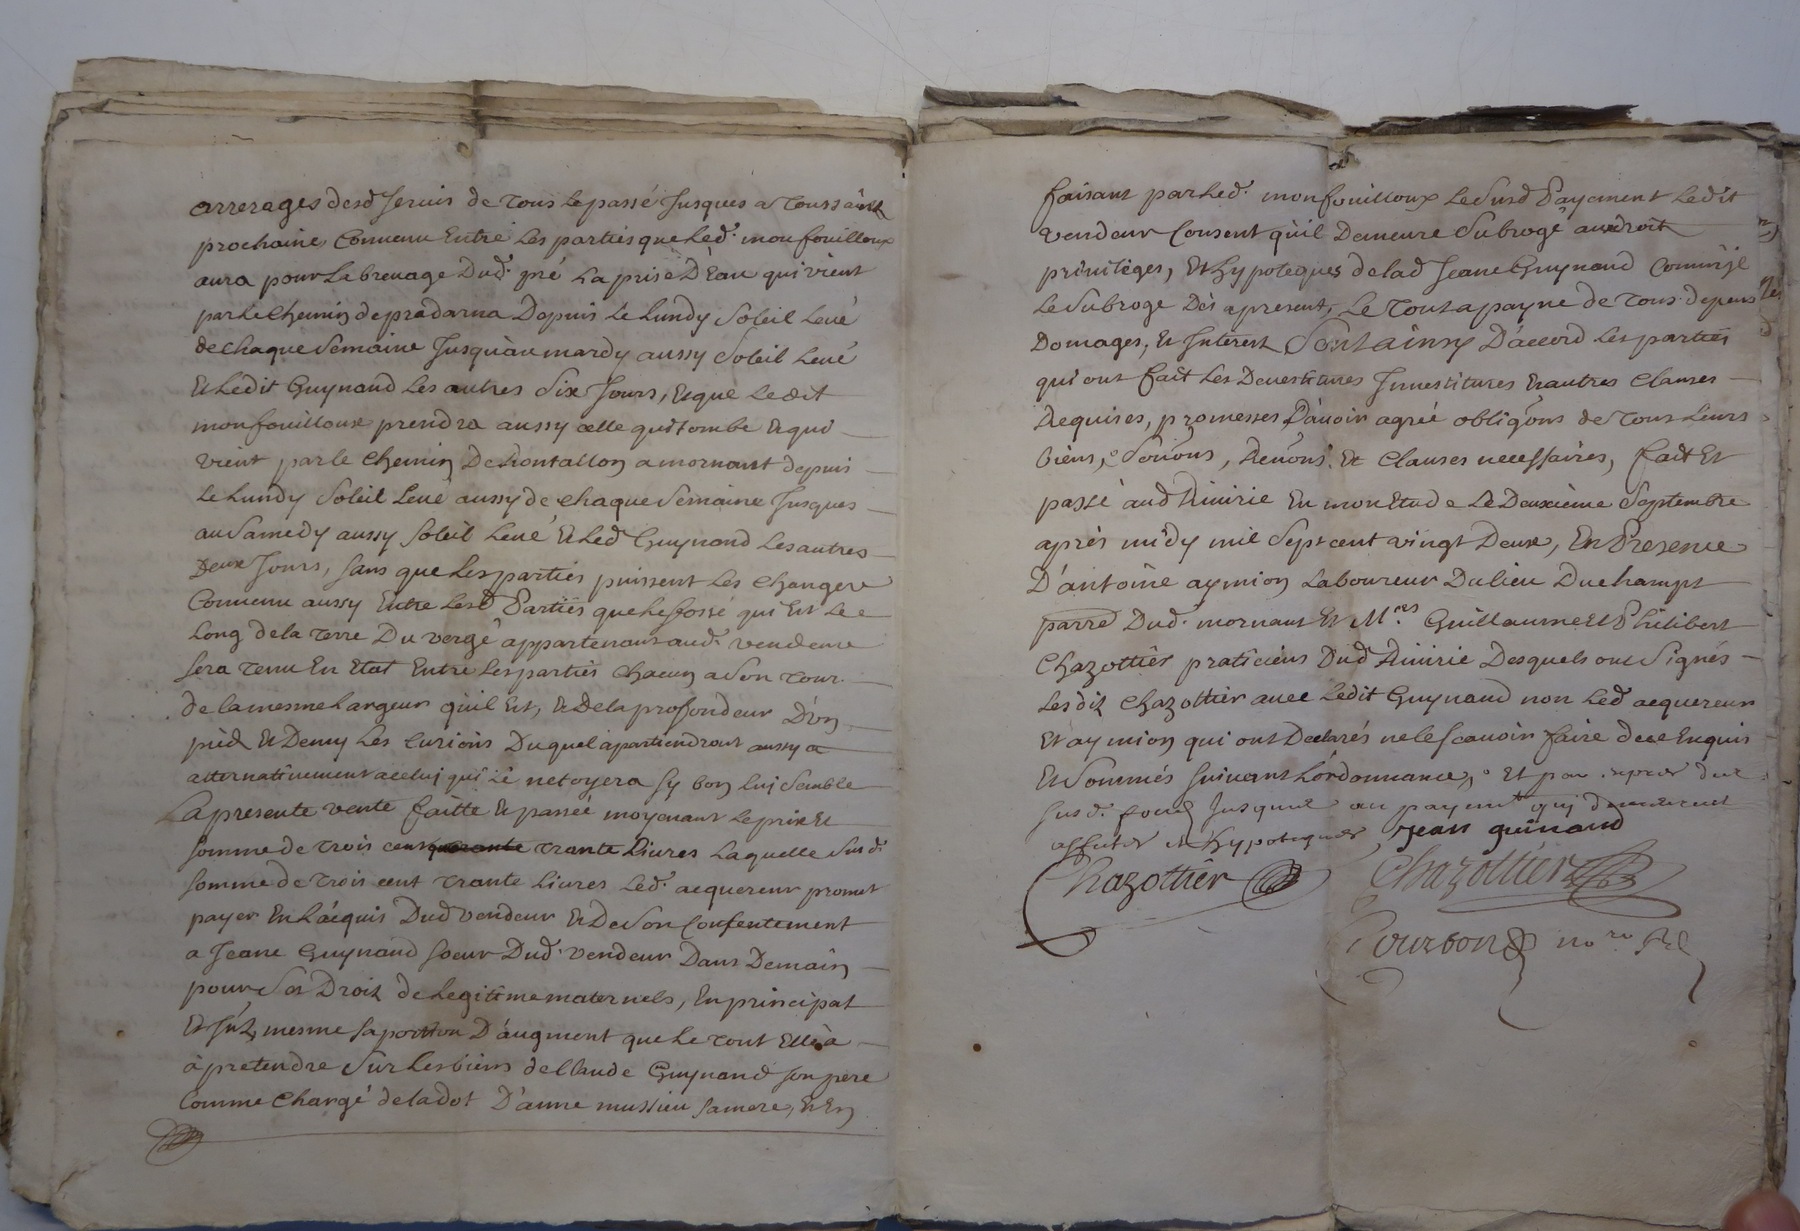 arrerages desd servis de tous le passé Jusques a toussaint
prochaines Convenu Entre Les parties que Led. monfouilloux
aura pour Le brevage Dud. pré La prise D'Eau qui vient
par le Chemin de pradarna Depuis Le Lundy Soleil Levé
de chaque Semaine Jusqu'au mardy aussy Soleil Levé
Et Ledit Guynand Les autres Six Jours, Et que Ledit
monfouilloux prendra aussy celle qui tombe Et qui
vient par le Chemin De Rontallon a mornant depuis
Le Lundy Soleil Levé aussy de chaque Semaine Jusques
au Samedy aussy Soleil Levé Et Led Guynand Les autres
Deux Jours, sans que Les parties puissent Les changer
Convenu aussy Entre Lesd Parties que Le fossé qui Est Le
Long de la terre Du vergé appartenant aud. vendeur
sera tenu En Etat Entre Les parties chacun a Son tour
de la mesme Largeur qu'il Est, Et De la profondeur D'un
pied Et Demy Les Curions Duquel apartiendront aussy a
alternativement a celuj qui Le netoyera sy bon Luj Semble
La presente vente faitte Et passée moyenant Le prix Et
somme de trois cent quarante trante Livres Laquelle Susd.
somme de trois cent trante Livres Led. acquereur promet
payer En L'acquis Dud vendeur Et De Son Consentement
a Jeane Guynand soeur Dud. vendeur Dans Demain
pour Ses Droit de Legitime maternels, En principal
Et mesme sa portion D'augment que Le tout Elle a
à pretendre Sur Les biens de Claude Guynand son pere
Comme Chargé de la dot D'anne mussieu sa mere, Et En
faisant par Led. monfouilloux Le Susd Payement Ledit
vendeur Consent qu'il Demeure Subrogé aux droit
privileges, Et hypoteques de lad Jeane Guynand Comm'jl
Le Subroge Dès apresent, Le tout a payne de tous depens
Domages, Et Interest Sont ainsy D'accord Les parties
qui ont fait Les Devestitures Investitures Et autres Clauses
Requises, promesses D'avoir agréé obligôns de tout Leurs
biens, Soûons, Renôns. Et Clauses necessaires, fait Et
passé aud Riverie En mon Etude Le Deuxième Septembre
après midy mil Sept cent vingt Deux, En Presence
D'antoine aymion Laboureur Du lieu Duchampt
parre Dud. mornant Et M.res Guillaume Et Philibert
Chazottier praticiens Dud Riverie Desquels ont Signés
Lesdit Chazottier avec Ledit Guynand non Led acquereur
Et aymion qui ont Declarés ne le Scavoir faire de ce Enquis
Et Sommés suivant L'ordonnance, Et par
susd. Jusques au payemt qui demeurent
hypotequés Jean guinand
Chazottier Chazottier
Bourbon no.re